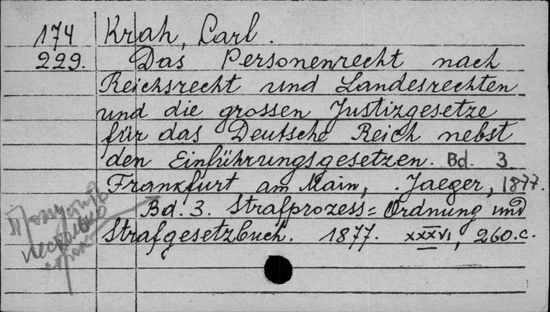 174 Krah, Carl.
229. Das Personenrecht nach
Reichsrecht und Landesrechten
und die grossen Justizgesetze
für das Deutsche Reich nebst
den Einführungsgesetzen. Bd. 3
Frankfurt am Main, Jaeger, 1877.
Bd. 3. Strafprozess=Ordnung und
Strafgesetzbuch. 1877. XXXVI, 260.c.
Пропустить
несколько
строк